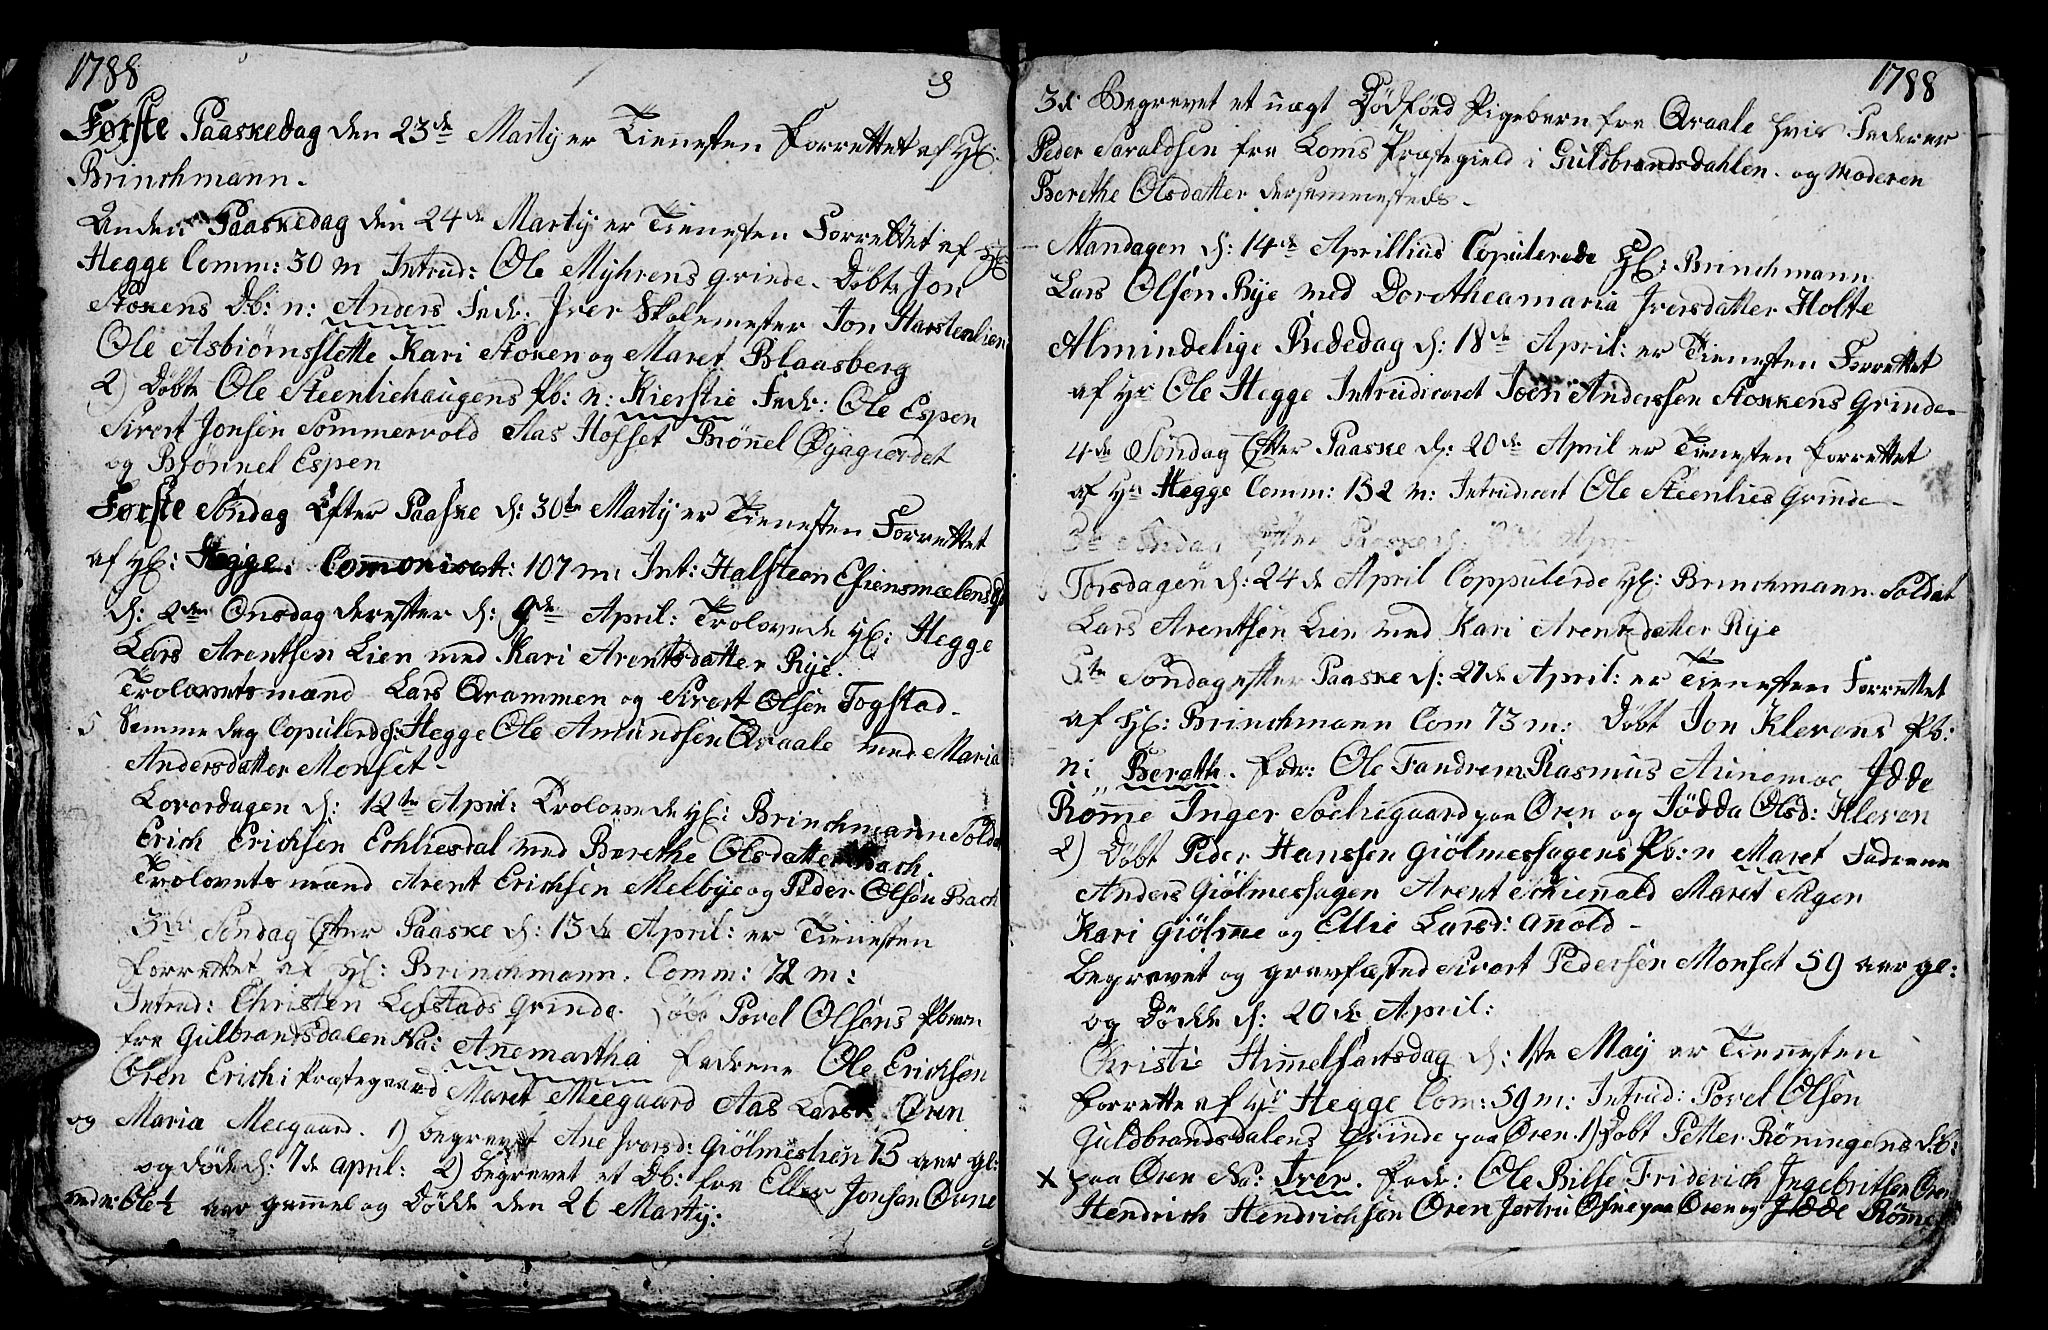 1788
8
Første Paaskedag den 23de Martij er Tienesten Forrettet af H:
Brinchmann.
Anden Paaskedag den 24de Martij er Tienesten Forrettet af H:
Hegge Comm: 30 m Introd: Ole Myhrens Grinde. Døbt Jon
Stokens Db: n: Anders Fadr: Iver Skolemester Jon Harstenlien
Ole Asbiørnslette Kari Stoken og Maret Blaasberg
2) Døbt Ole Steenliehaugens Pb: n: Kierstie Fadr: Ole Espen
Sivert Jonsen Sommervold Aas Hofset Brønnel Øyagiordet
og Brønnel Espen
Første Søndag Efter Paaske d: 30te Martij er Tienesten Forrettet
af H: Hegge. Communicat: 107 m: Int: Halsteen
d: 2den Onsdag derefter d: 9de April: Trolovede H: Hegge
Lars Arentsen Lien med Kari Arentsdatter Rye.
Trolovetsmænd Lars Qrammen og Sivert Olsen Fogstad.
5 Samme dag Copulerede H: Hegge Ole Amundsen Qraale med Maria
Andersdatter Monset.
Løverdagen d: 12te April: Trolovede H: Brinchmann Soldat
Erich Erichsen Echliesdal med Berethe Olsdatter Bach.
Trolovetsmænd Arent Erichsen Melbye og Peder Olsen Bach
3de Søndag Efter Paaske d: 13de April: er Tienesten
forrettet af H: Brinchmann. Comm: 72 m:
Introd: Christen Lefstads Grinde. Døbt Povel Olsens Pbarn
fra Gulbrandsdalen Na: Annemartha Fadrene Ole Erichsen
Øren Erich i Præstegaard Maret Meegaard Aas Lars: Øren
og Maria Meegaard. 1) begravet Ane Iversd: Giølmeslien 75 aar gl:
og døde d: 7de April: 2) begravet et Db: fra Elling Jonsen Øvne
ved n: Ole ½ aar gammel og Døde den 26 Martij:
1788
3de Begravet et uægt Dødfød Pigebarn fra Qraale hvis Fader er
Peder Haraldsen fra Loms Præstegield i Guldbrandsdahlen og Moderen
Berethe Olsdatter dersammesteds.
Mandagen d: 14de Aprillius Copulerede H: Brinchmann
Lars Olsen Rye med Dorotheamaria Iversdatter Holte
Almindelige Bededag d: 18de April: er Tienesten Forrettet
af Hr Ole Hegge Introducert Joen Anderssen Stokkens Grinde.
4de Søndag Efter Paaske d: 20de April er Tienesten Forrettet
af Hr Hegge Comm: 152 m: Introducert Ole Steenlies Grinde.
3de Søndag Efter Paaske d:
Torsdagen d: 24de April Coppulerede H: Brinchmann Soldat
Lars Arentsen Lien med Kari Arentzdatter Rye
5te Søndag efter Paaske d: 27de April: er Tienesten Forrettet
af H: Brinchmann Com 73 m: Døbt Jon Klevens Pb:
n: Berethe. Fadr: Ole Fandrem Rasmus Aunemoe Idde
Rømme Inger Sochnegaard paa Øren og Jødda Olsd: Kleven
2) Døbt Peder Hanssen Giølmeshagens Pb: n Maret Fadrene
Anders Giølmeshagen Arent Schienald Maret Hagen
Kari Giølme og Ellie Larsd: Anold.
Begravet og gravfæsted Sivert Pedersen Monset 59 aar gl:
og Døde d: 20de April:
Christi Himmelfartsdag d: 1ste Maij er Tienesten
Forrettet af Hr Hegge Com: 59 m: Introd: Povel Olsen
Guldbrandsdalens Grinde paa Øren 1) Døbt Petter Røningens Db:
x paa Øren Na: Iver. Fadr: Ole Bilse Friderich Ingebritsen Øren
Hendrich Hendrichsen Øren Jertru Ofne paa Øren og Idde Rømme